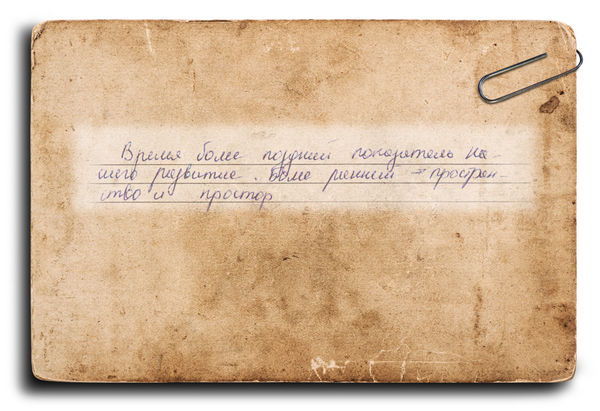 Время более поздний показатель на-
шего развитие. Более ранний - простран-
ство и простор